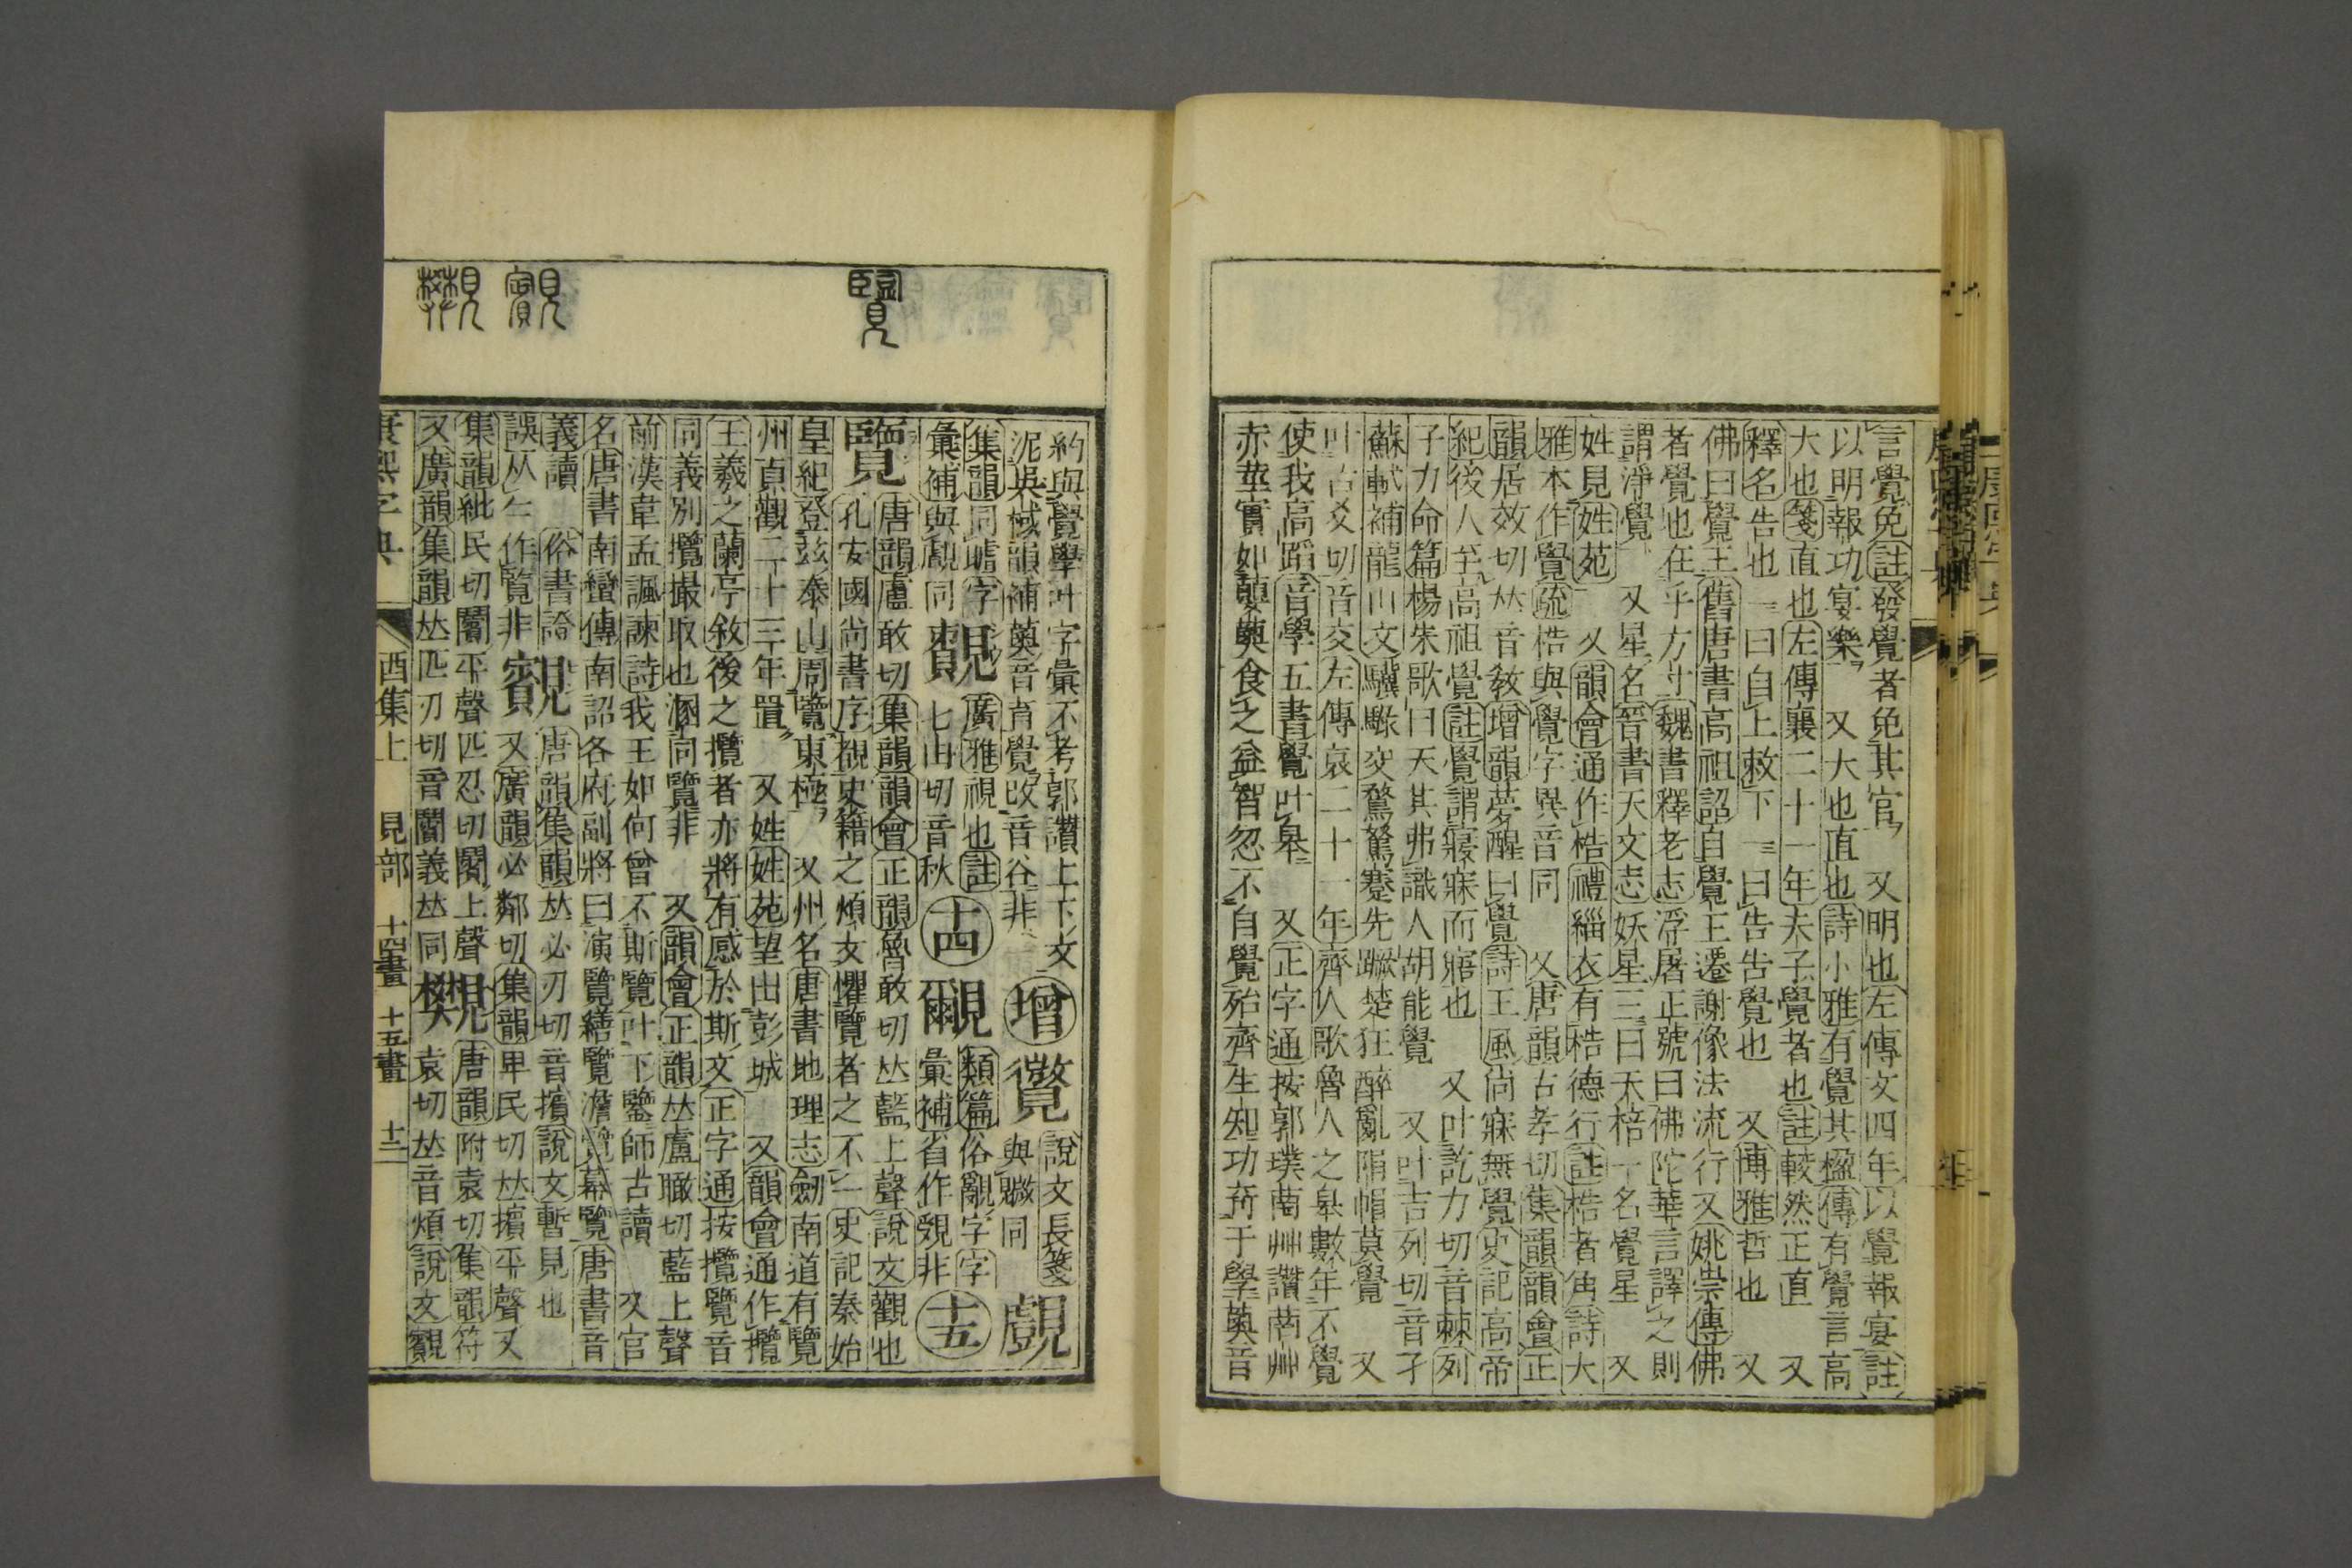 言覺免註發覺者免其官 又明也左傳文四年以覺報宴註
以明報功宴樂 又大也直也詩小雅有覺其楹傳有覺言高
大也箋直也左傳襄二十一年夫子覺者也註較然正直 又
釋名告也 一曰自上敕下一曰告告覺也 又博雅哲也 又
佛曰覺王舊唐書高祖詔自覺王遷謝像法流行又姚崇傳佛
者覺也在乎方寸魏書釋老志浮屠正號曰佛陀華言譯之則
謂淨覺 又星名晉書天文志妖星三曰天棓一名覺星 又
姓見姓苑 又韻會通作梏禮緇衣有梏德行註梏者角詩大
雅本作覺疏梏與覺字異音同 又唐韻古孝切集韻韻會正
韻居效切𠀤音敎增韻夢醒曰覺詩王風尚寐無覺史記高帝
紀後人至高祖覺註覺謂寢寐而寤也 又叶訖力切音棘列
子力命篇楊朱歌曰天其弗識人胡能覺 又叶吉列切音孑
蘇軾補龍山文驥騄交騖駑蹇先蹶楚狂醉亂隕帽莫覺 又
叶古爻切音交左傳哀二十一年齊人歌魯人之皐數年不覺
使我高蹈音學五書覺叶皐 又正字通按郭璞萄艸讚萄艸
赤莖實如蘡薁食之益智忽不自覺殆齊生知功奇于學薁音
覽 覿 𧢜
約與覺學叶字彙不考郭讚上下文
泥吳棫韻補薁音育覺改音谷非
增 覺 說文長箋
與𧢄同 覷
集韻同𥉻字 廣雅視也註
彙補與覰同 七由切音秋
十四 覼 類篇俗𧡴字字
彙補省作覙非 十五
覽 唐韻盧敢切集韻韻會正韻魯敢切𠀤藍上聲說文觀也
孔安國尚書序覩史籍之煩文懼覽者之不一史記秦始
皇紀登兹泰山周覽東極 又州名唐書地理志劒南道有覽
州貞觀二十三年置 又姓姓苑望出彭城 又韻會通作攬
王羲之蘭亭敘後之攬者亦將有感於斯文正字通按攬覽音
同義別攬撮取也溷同覽非 又韻會正韻𠀤盧瞰切藍上聲
前漢韋孟諷諫詩我王如何曾不斯覽叶下鑒師古讀 又官
名唐書南蠻傳南詔各府副將曰演覽繕覽澹覽幕覽唐書音
義讀
俗書謌 覿 唐韻集韻𠀤必刃切音擯說文暫見也
誤从生作覽非 又廣韻必鄰切集韻卑民切𠀤擯平聲又
集韻紕民切闠平聲匹忍切闠上聲 𧢜 唐韻附袁切集韻符
又廣韻集韻𠀤匹刃切音闠義𠀤同 袁切𠀤音煩說文觀
康熙字典 酉集上 見部 十四畫 十五畫 十三